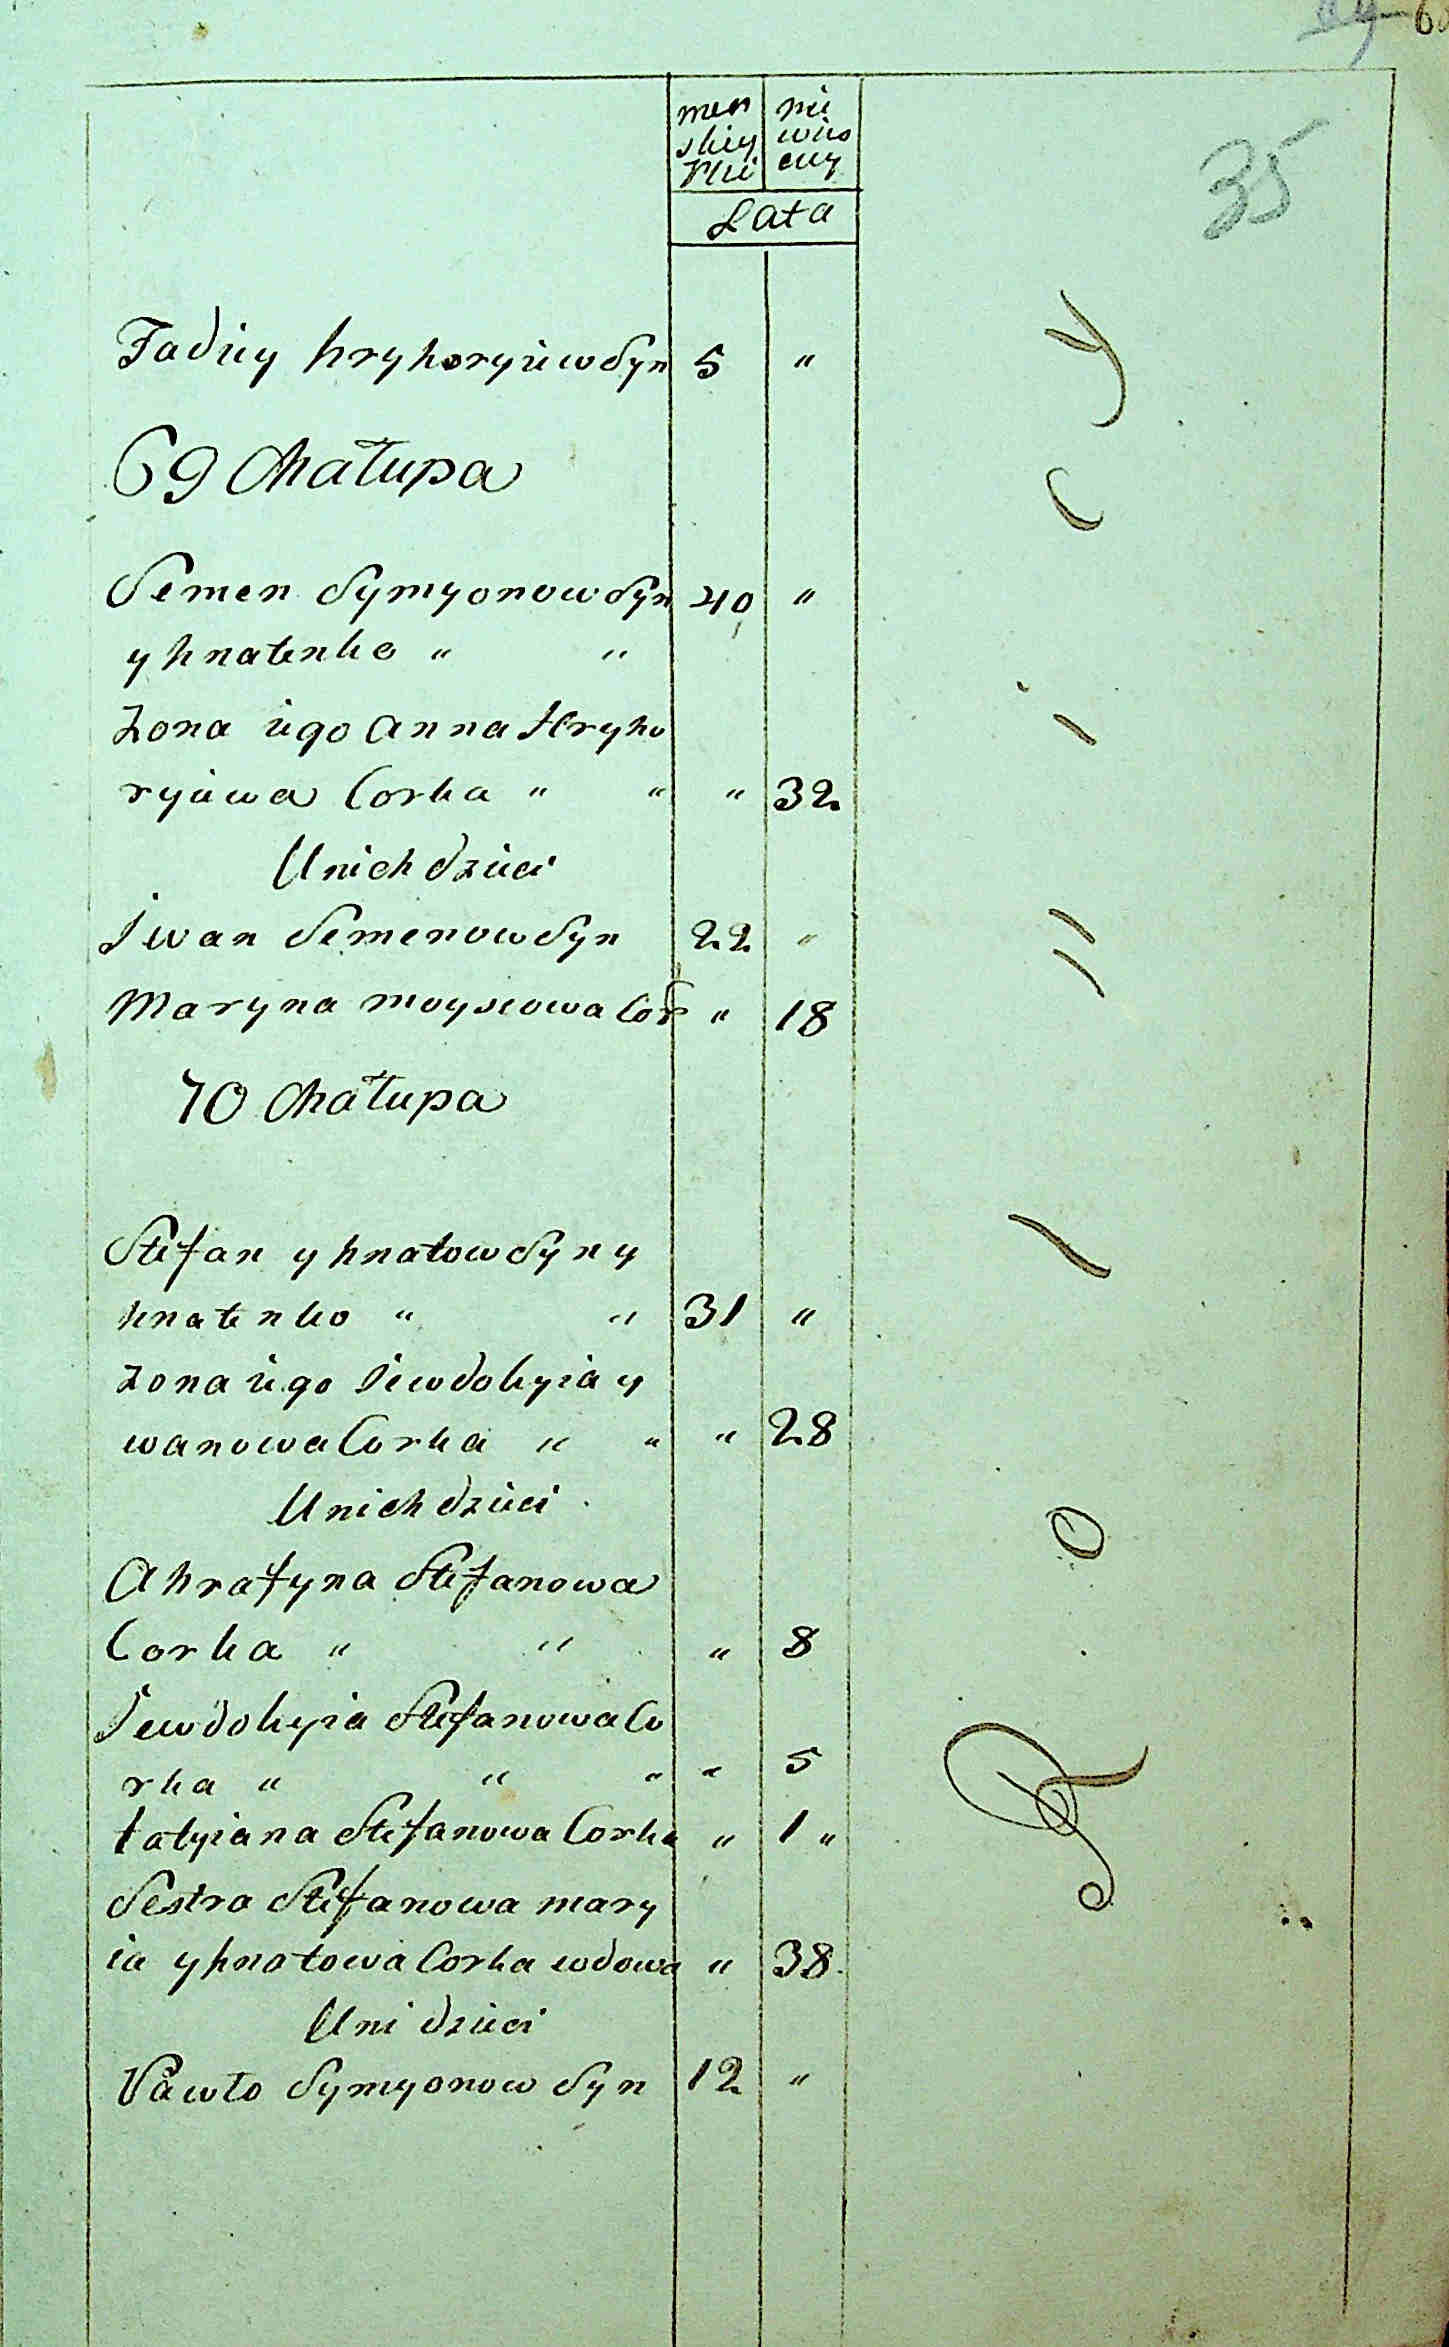 35
men nie
skiey wies
Płci ciey
Lata
Fadiey hryhoryiew Syn 5 "
69 Chałupa
Semen Symyonow Syn 40 "
yhnatenko " "
Zona iego Anna Hryho
ryiewa Corka " " " 32
Unich dzieci
Iwan Semenow Syn 22 "
Maryna moysiowa Cor " 18
70 Chałupa
Stefan yhnatow Syn y
hnatenko " " 31 "
Zona iego Iewdokyia y
wanowa Corka " " " 28
Unich dzieci
Ahrafyna Stefanowa
Corka " " " 8
Iewdokyia Stefanowa Co
rka " " " " 5
tatyiana Stefanowa Corka " 1 "
Sestra Stefanowa mary
ia yhnatowa Corka wdowa " 38
Uni dzieci
Pawło Symyonow Syn 12 "